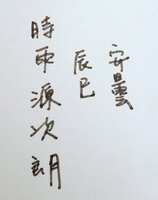 安曇
辰巳
時雨源次朗